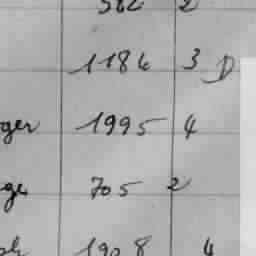 582 2
1184 3 D
ger 1995 4
ge 705 2
1908 4